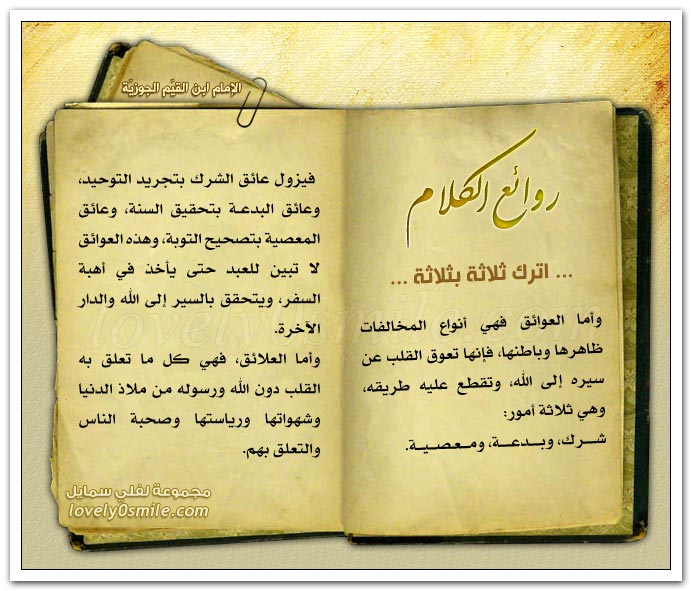 الإمام ابن القيّم الجوزيّة
روائع الكلام
... اترك ثلاثة بثلاثة ...
وأما العوائق فهي أنواع المخالفات
ظاهرها وباطنها، فإنها تعوق القلب عن
سيره إلى الله، وتقطع عليه طريقه،
وهي ثلاثة أمور:
شــرك، وبــدعــة، ومـعـصـيـة.
فيزول عائق الشرك بتجريد التوحيد،
وعائق البدعة بتحقيق السنة، وعائق
المعصية بتصحيح التوبة، وهذه العوائق
لا تبين للعبد حتى يأخذ في أهبة
السفر، ويتحقق بالسير إلى الله والدار
الآخرة.
وأما العلائق، فهي كل ما تعلق به
القلب دون الله ورسوله من ملاذ الدنيا
وشهواتها ورياستها وصحبة الناس
والتعلق بهم.
مجموعة لفلي سمايل
lovely0smile.com
lovely0smile.com